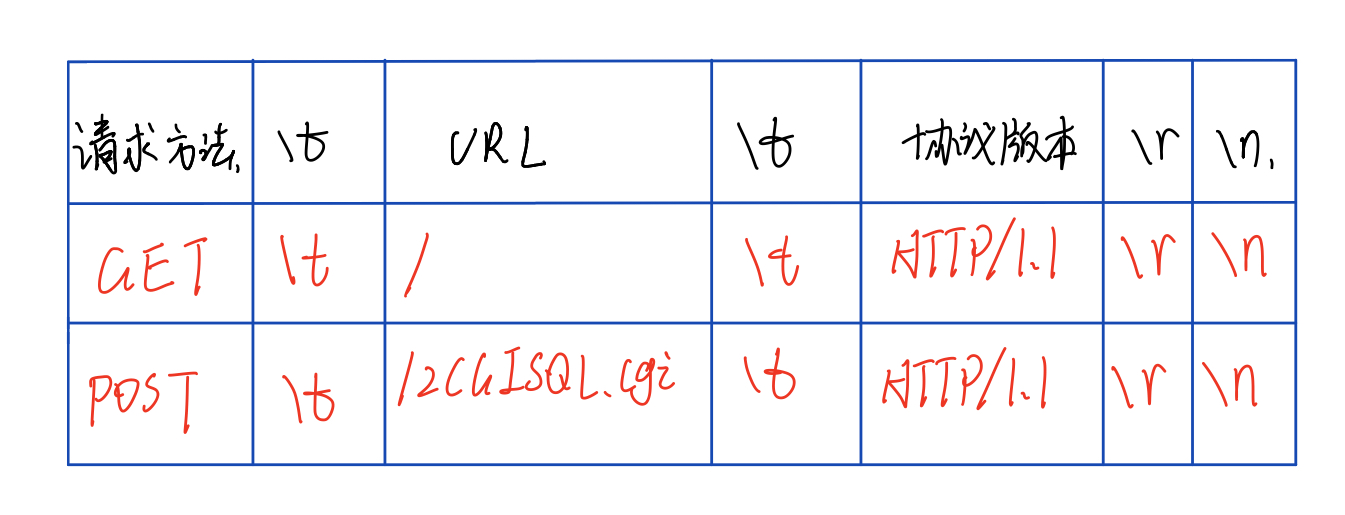 请求方法. \t URL \t 协议版本 \r \n.
GET \t / \t HTTP/1.1 \r \n
POST \t /2CGISQL.cgi \t HTTP/1.1 \r \n